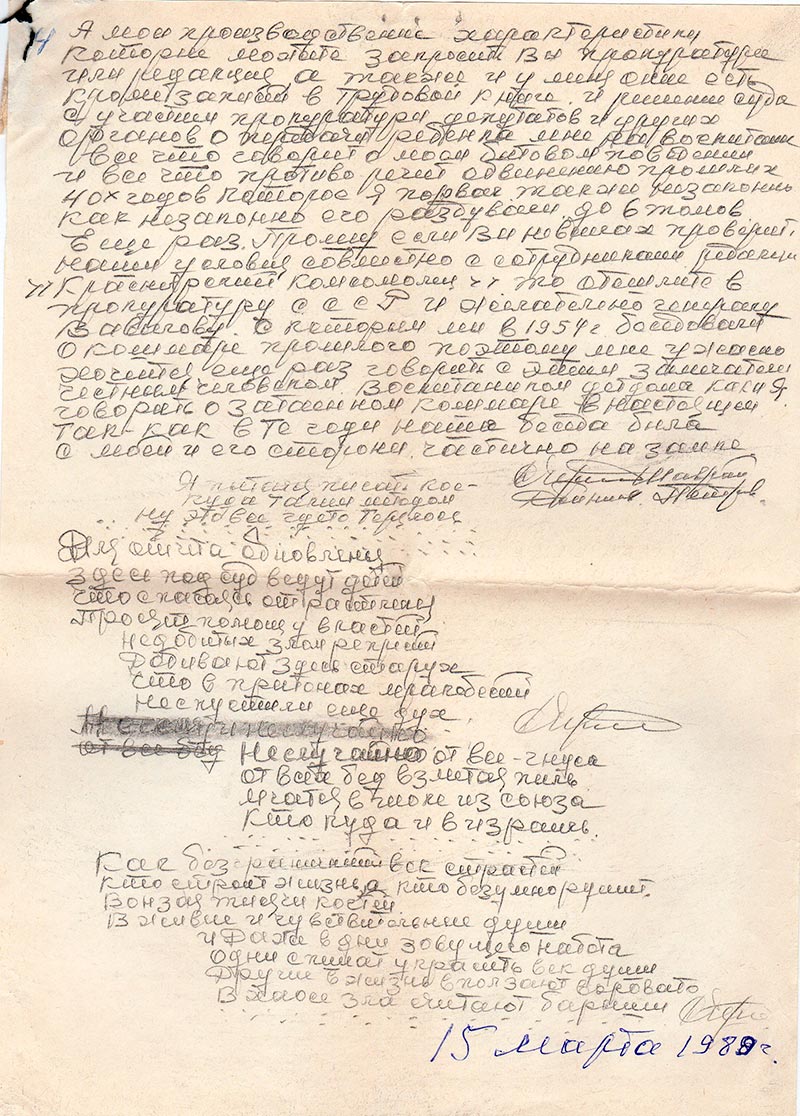 4 А мои производствения характеристики
которие можите запросить Ви прокуратури
или редакция а также и у миня оние есть
кроми записи в трудовой книге. и решение суда
с участием прокуратури депутатов и других
органов о передачи ребенка мне на воспитание
все что говорит о моем битовом поведении
и все что противо речит обвинению прошлих
40х годов которое я порвал также незаконно
как незаконно его раздували до 6 томов
Еще раз. Прошу если Ви проверит.
наши условия совместно с сотрудниками редакции
"Красноярский комсомолец" то отошлите в
прокуратуру СССР и желательно генералу
с которим ми в 1954 г. беседовали
о кошмаре прошлого поэтому мне ужасно
хочится еще раз говорить с этим замечател
честним человеком. Воспитаником детдома как и я
говорить о затаеном кошмаре в настоящем
так-как в те годи наша беседа била
с моей и его сторони, частично на замке
Я питаюся писать кое-
куда таким методом
ну это все гдето
Для отчета обновлений
Здесь под суд ведут детей
что спасаясь от растлений
Просят помощи у властей
недобитых злом репресий
Добивают здесь старух
Что в притонах мракобесий
Неспустили еще дух.
Неслучайно
от все бед Неслучайно от все-гнуса
от всех бед взметая пиль
мчатся в шоке из союза
Кто куда и в израиль.
Как без решений век страстей
Кто строит жизнь, а кто безумно рушит.
Вонзая когтей
В живие и чувствительние души
и Даже в дни зовущего набата
Одни спишат украсить век души
Другие в жизнь вползают воровато
В хаосе зла считают бариши
15 марта 1989 г.